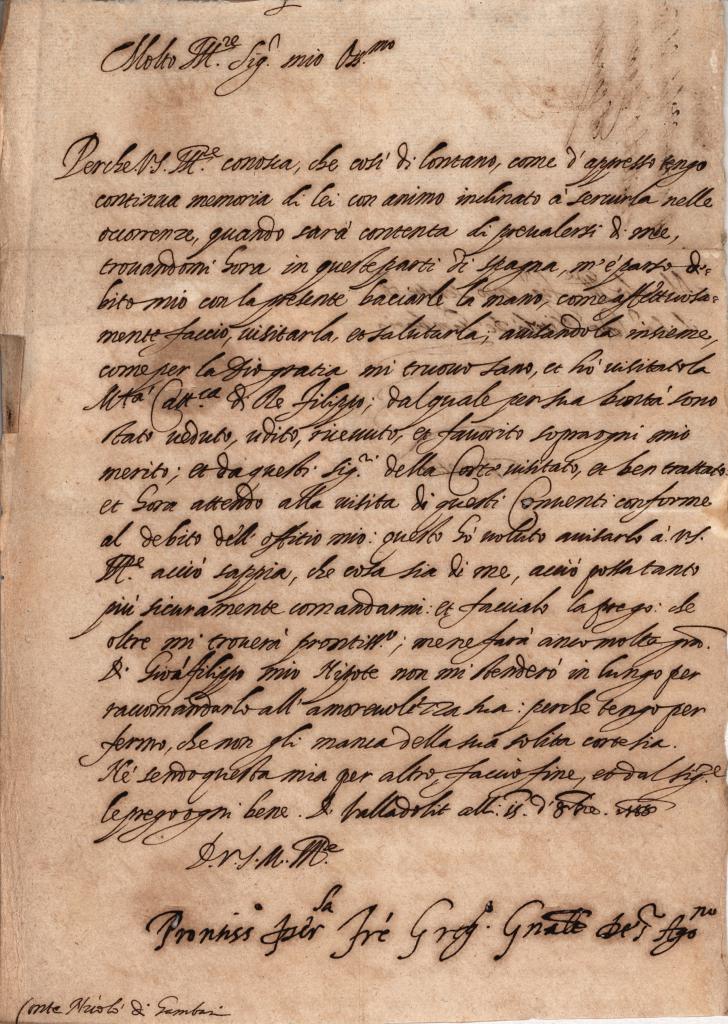 Molto Ill.re Sig.r mio Oss.mo
Perche V.S. Ill.re conosca, che così di lontano, come d'appresso tengo
continua memoria di lei con animo inclinato à servirla nelle
occorrenze, quando sarà contenta di prevalersi di me,
trovandomi hora in queste parti di spagna, m'è parso de-
bito mio con la presente baciarle la mano, come affettuosa=
mente faccio, visitarla, et salutarla; avisandola insieme,
come per la Dio gratia mi truovo sano, et hò visitato la
M.tà Catt.ca di Re Filippo; dal quale per sua bontà sono
stato veduto, udito, ricevuto, et favorito sopra ogni mio
merito; et da questi Sig.ri della Corte visitato, et ben trattato
et hora attendo alla visita di questi Conventi conforme
al debito dell'offitio mio: questo hò voluto avisarlo à V.S.
Ill.re acciò sappia, che cosa sia di me, acciò possa tanto
più sicuramente comandarmi: et faccialo la prego: che
oltre mi troverà prontiss.o; me ne farà anco molta gra.
Di Gioã filippo mio Nipote non mi stenderò in lungo per
raccomandarlo all'amorevolezza sua: perche tengo per
fermo, che non gli manca della sua solita cortesia.
Nè sendo questa mia per altro, faccio fine, et dal Sig.re
le prego ogni bene. Di Valladolit alli 15 d'8bre
D.V.S.M. Ill.re
Prontiss.o per ser.la Frè Greg.o Ago.no
Conte Nicolò di Gambara